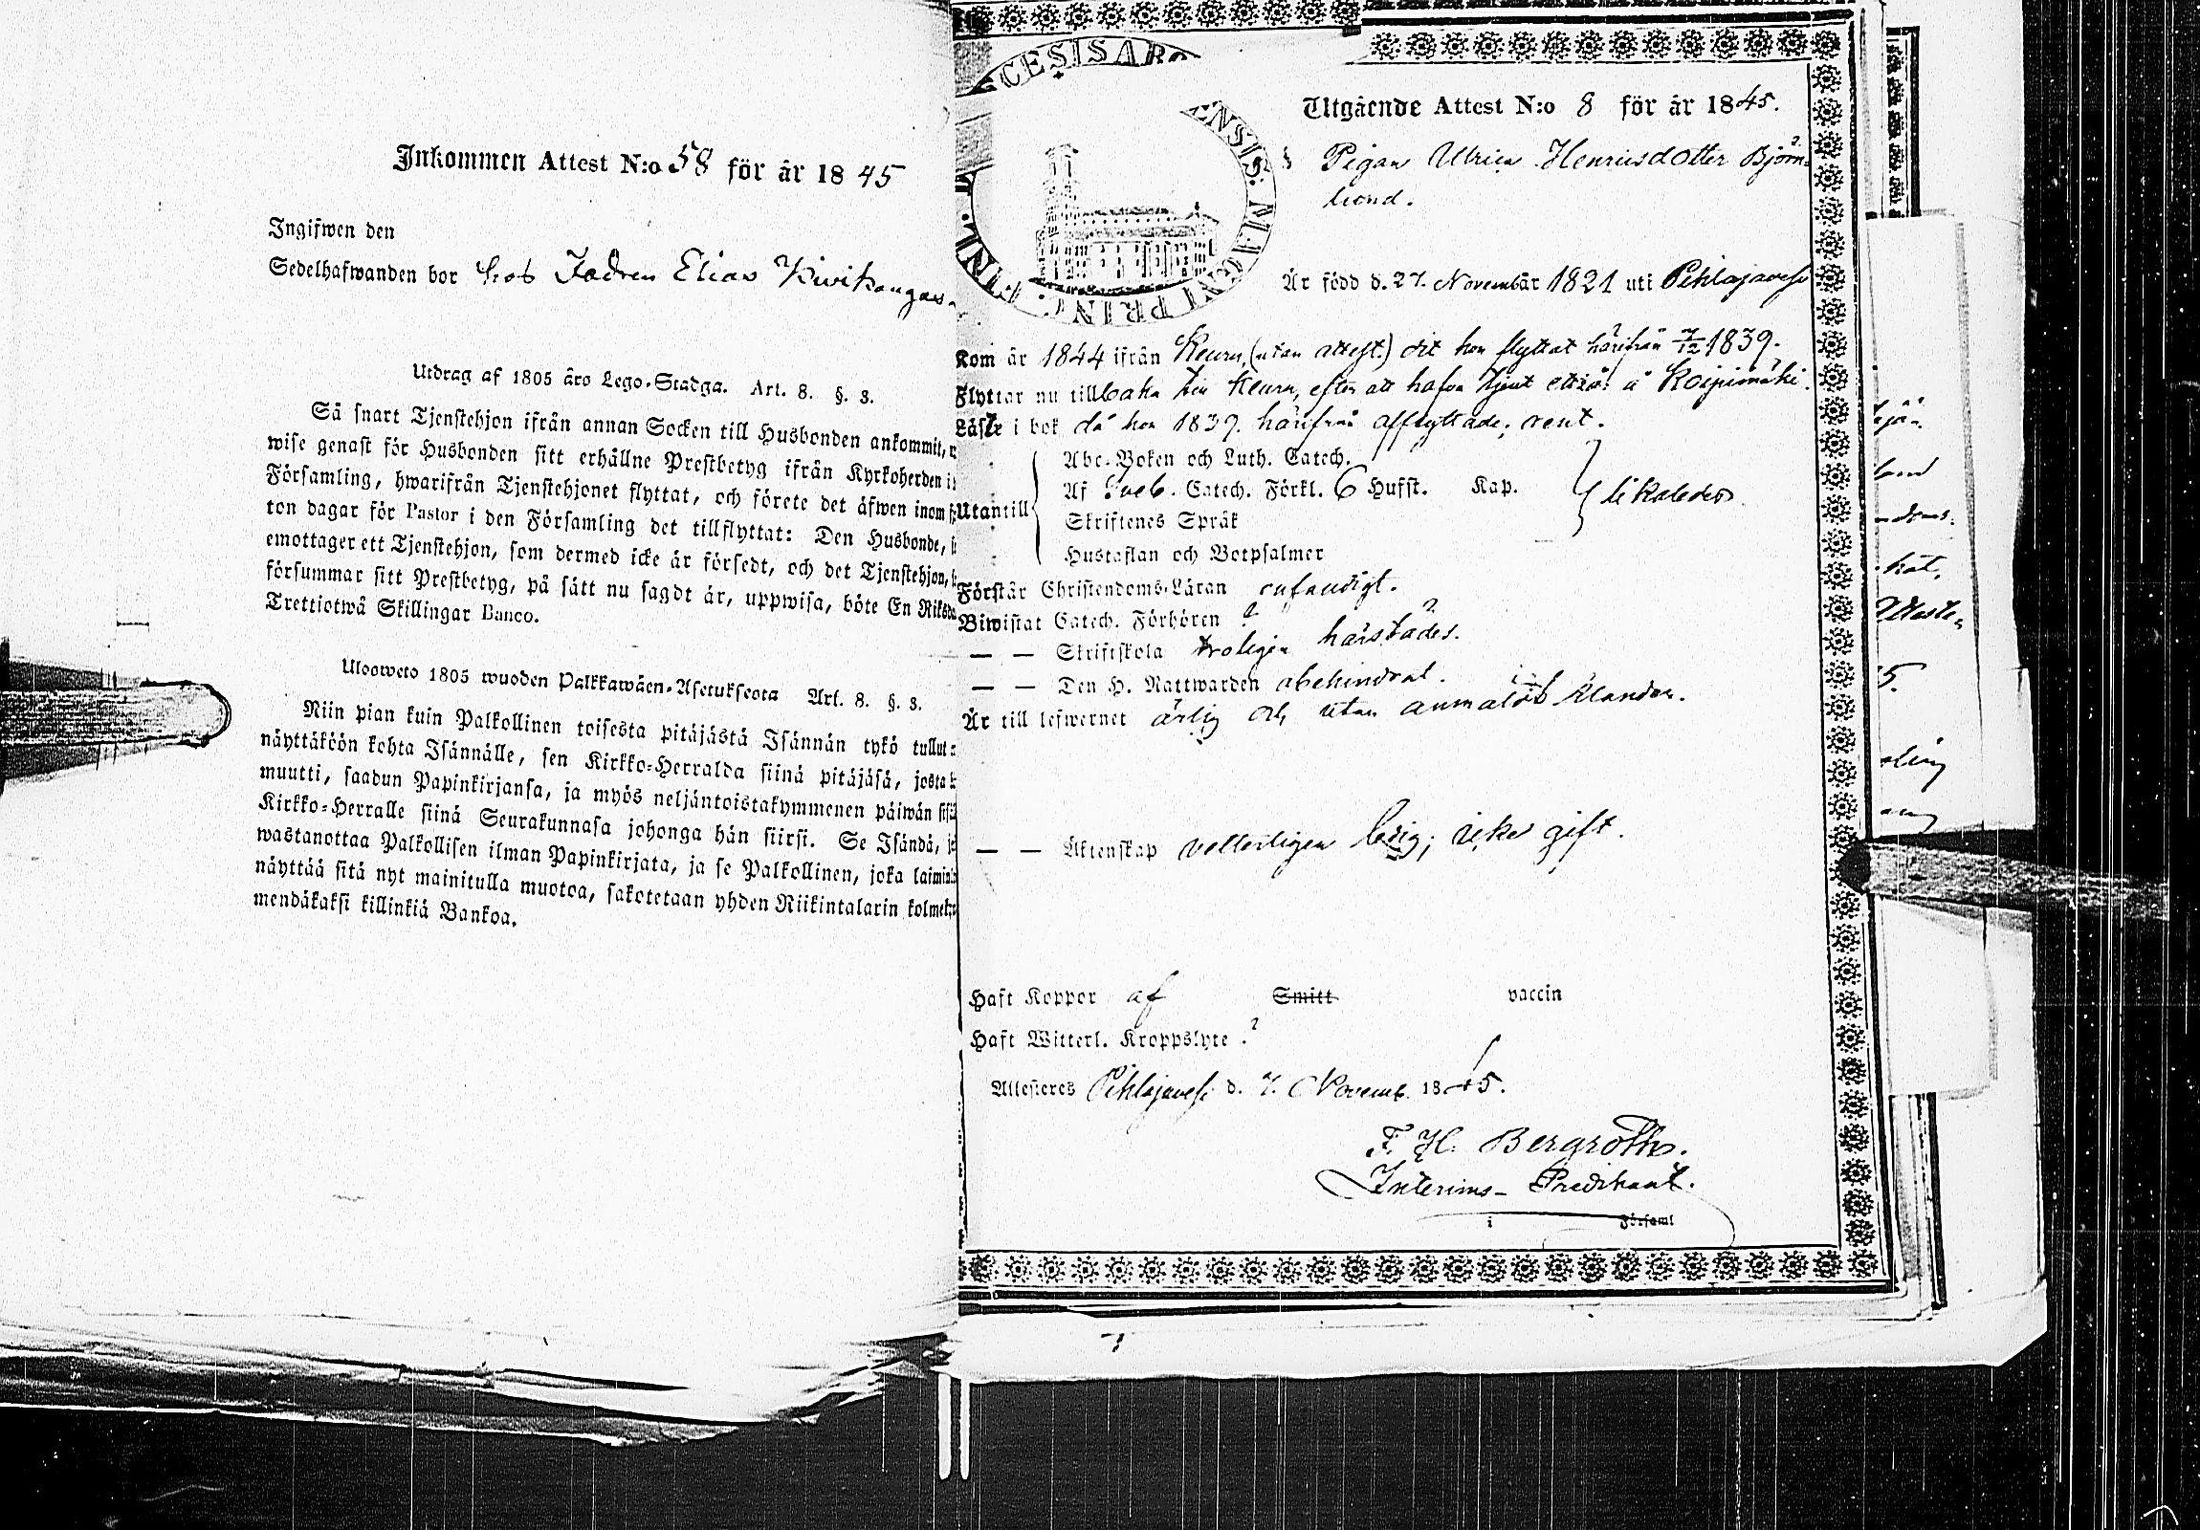 Inkommen Attest N:o 58 för år 1845
Ingifwen den
Sedelhafwanden bor hos Fadren Elias Kivikangas
Utdrag af 1805 års Lego-Stadga. Art. 8. §. 3.
Så snart Tjenstehjon ifrån annan Socken till Husbonden ankommit,
wise genast för Husbonden sitt erhållne Prestbetyg ifrån Kyrkoherden i
Församling, hwarifrån Tjenstehjonet flyttat, och förete det äfwen inom
ton dagar för Pastor i den Församling det tillflyttat: Den Husbonde,
emottager ett Tjenstehjon, som dermed icke är försedt, och det Tjenstehjon,
försummar sitt Prestbetyg, på sätt nu sagdt är, uppwisa, böte En Riksda
Trettiotwå Skillingar Banco.
Ulosweto 1805 wuoden Palkkawäen-Asetuksesta Art. 8. §. 3.
Niin pian kuin Palkollinen toisesta pitäjästä Isännän tykö tullut
näyttäköön kohta Isännälle, sen Kirkko-Herralda siinä pitäjäsä, josta
muutti, saadun Papinkirjansa, ja myös neljäntoistakymmenen päiwän sisä
Kirkko-Herralle siinä Seurakunnasa johonga hän siirsi. Se Isändä,
wastanottaa Palkollisen ilman Papinkirjata, ja se Palkollinen, joka laimin
näyttää sitä nyt mainitulla muotoa, sakotetaan yhden Riikintalarin kolme
mendäkaksi killinkiä Bankoa.
Utgående Attest N:o 8 för år 1845.
Pigan Ulrica Henricsdotter Björn-
lund.
Är född d. 27. November 1821 uti Pihlajavesi
Kom år 1844 ifrån Keuru, (utan attest.) dit hon flyttat härifrån 7/12 1839.
Flyttar nu tillbaka till Keuru, efter att hafva tjent ett år å Koipimäki.
Läste i bok då hon 1839. härifrån afflyttade, rent.
Utantill
Abc-Boken och Luth. Catech.
Af Sveb. Catech. Förkl. 6 Hufst. Kap.
Skriftenes Språk
Hustaflan och Botpsalmer
likaledes
Förstår Christendoms-Läran enfaldigt.
Biwistat Catech. Förhören ?
— — Skriftskola troligen härstädes.
— — Den H. Nattwarden obehindrat.
Är till lefwernet ärlig och utan anmäldt klander.
— — Äktenskap vetterligen ledig; icke gift.
Haft Koppor af Smitt vaccin
Haft Witterl. Kroppslyte ?
Attesteres Pihlajavesi d. 7. Novemb. 1845.
F. H. Bergroth.
Interims-Predikant.
i Församl